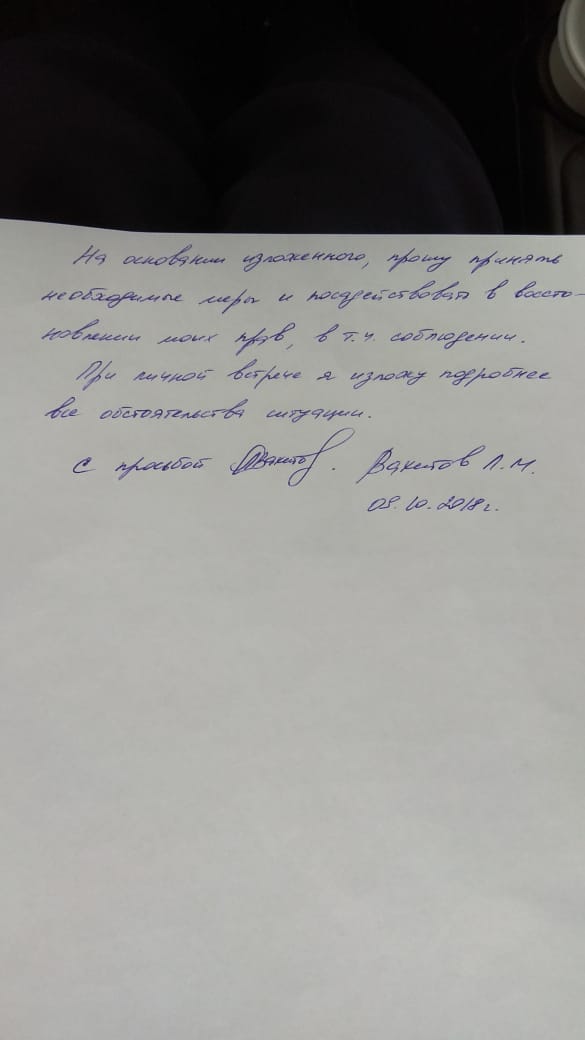 На основании изложенного, прошу принять
необходимые меры и посодействовать в восста-
новлении моих прав, в т.ч. соблюдении.
При личной встрече я изложу подробнее
все обстоятельства ситуации.
С просьбой Вахитов Л.М.
10.2018г.